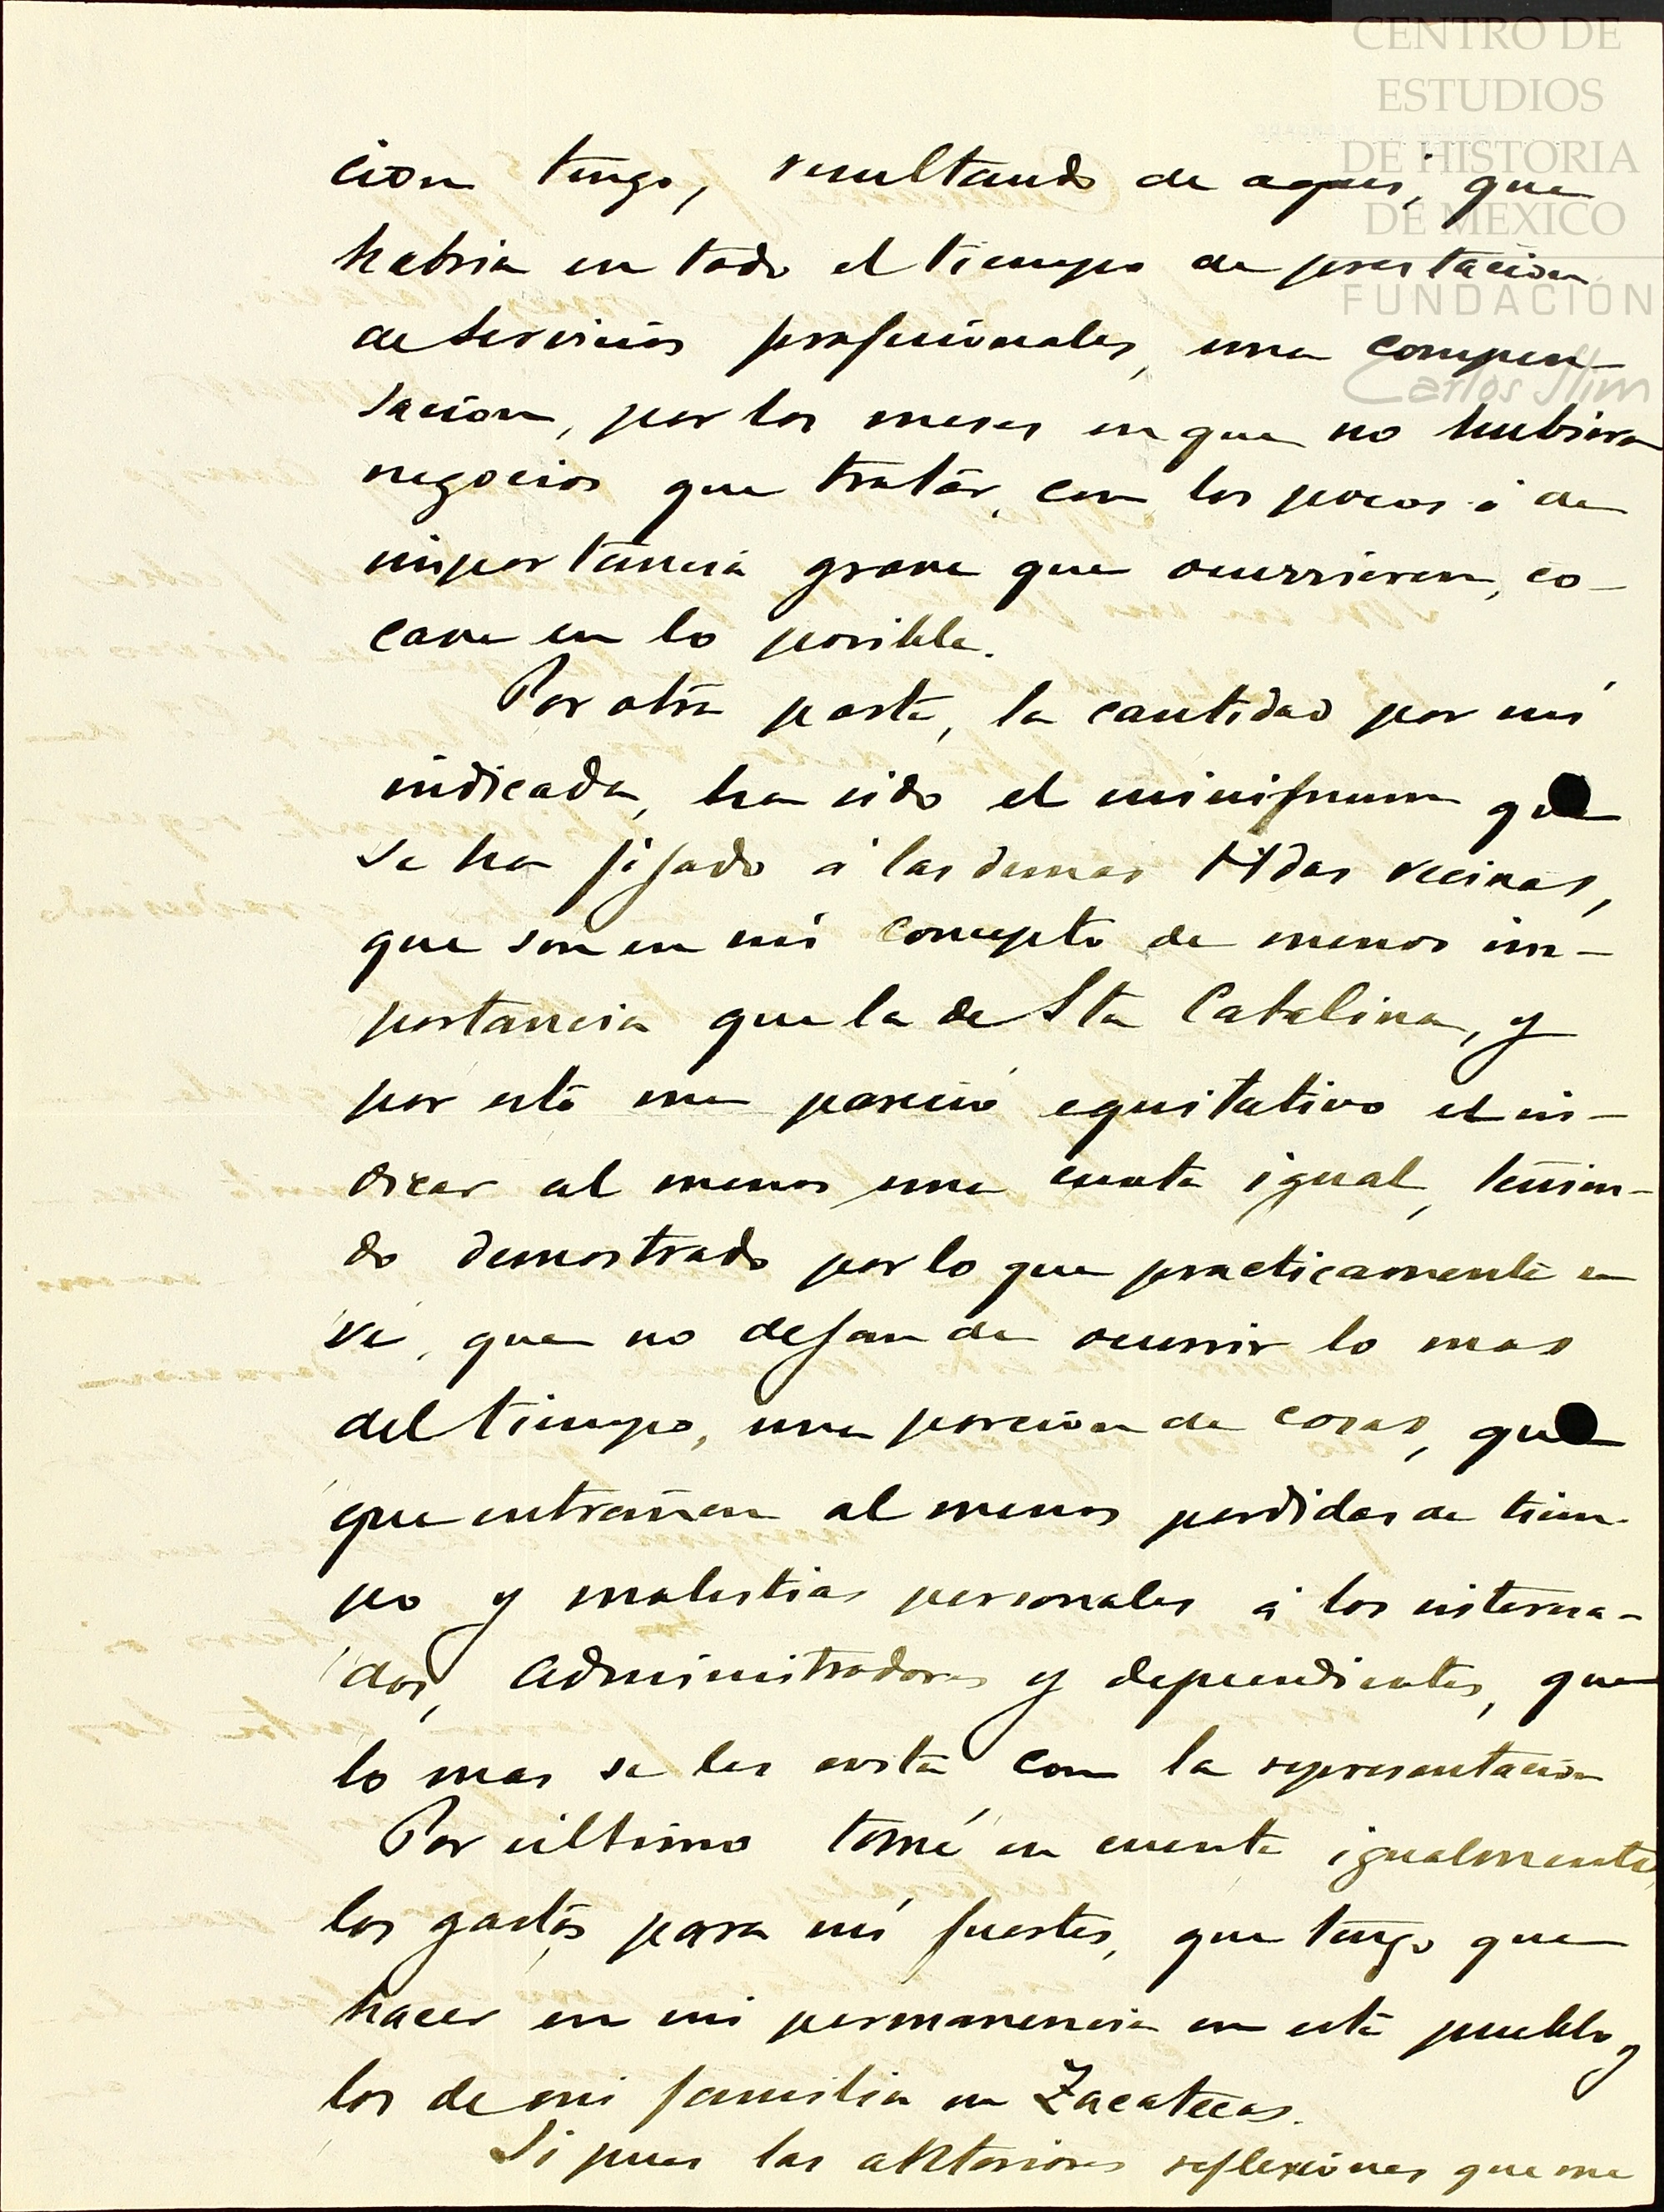 CENTRO DE
ESTUDIOS
DE HISTORIA
DE MEXICO
FUNDACIÓN
Carlos Slim
cion tengo, resultando de aqui, que
habria en todo el tiempo de prestacion
de servicios profesionales, una compen-
sacion, por los meses en que no hubiera
negocios que tratar, con los pocos ó de
importancia grave que ocurrieren, co-
en lo posible.
Por otra parte, la cantidad por mí
indicada, ha sido el minimum que
se ha fijado á las demas Hdas vecinas,
que son en mi concepto de menos im-
portancia que la de Sta Catalina, y
por esto me pareció equitativo el in-
dicar al menos una cuota igual, tenien-
do demostrado por lo que practicamente se
vé, que no dejan de ocurrir lo mas
del tiempo, una porcion de cosas, que
que entrañan al menos perdidas de tiem-
po y molestias personales á los interesa-
dos, administradores y dependientes, que
lo mas se les evita con la representacion
Por último tomé en cuenta igualmente,
los gastos para mí fuertes, que tengo que
hacer en mi permanencia en este pueblo y
los de mi familia en Zacatecas.
Si pues las anteriores reflexiones que me